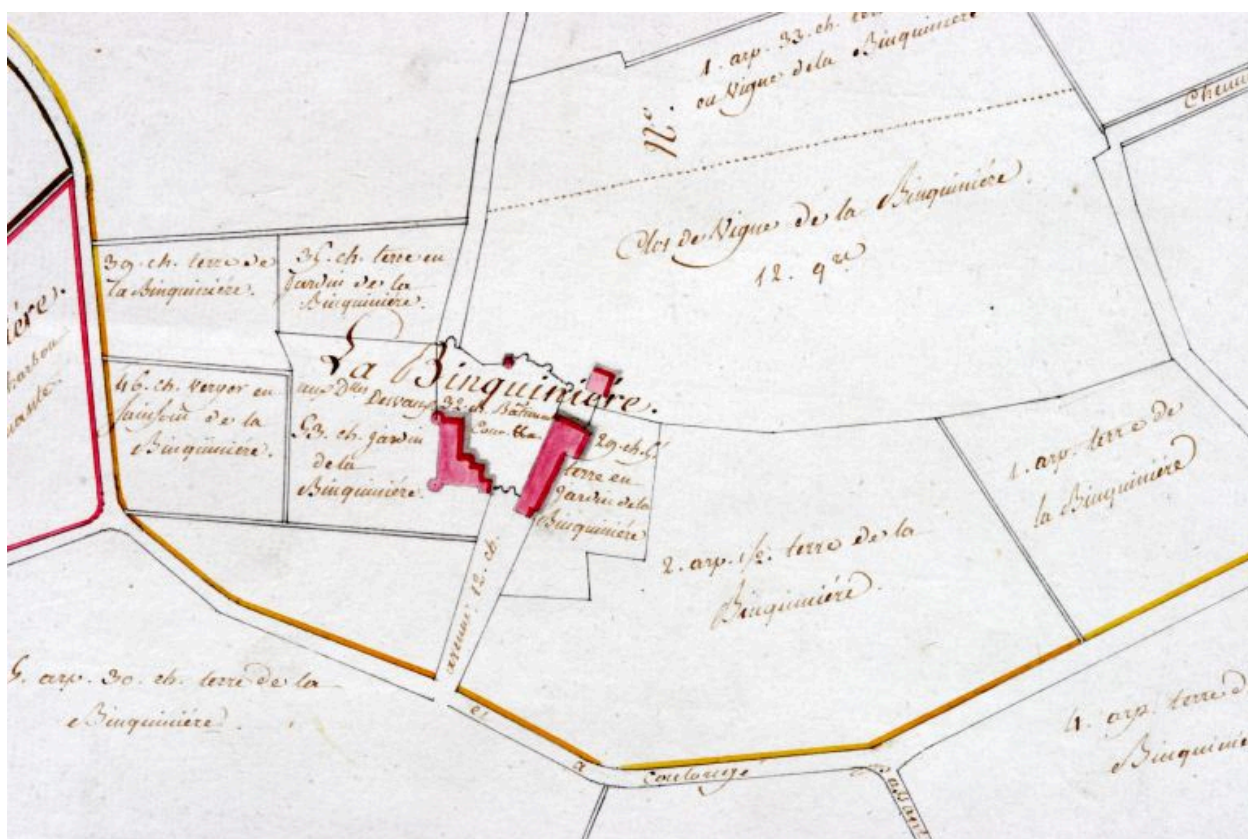 1. arp. 33. ch. ter
ou Vigne de la Binquiniére
N.º
Chemin
Clos de Vigne de la Binquiniére
12. q.rs
39. ch. terre de
la Binquiniére.
35. ch. terre en
Jardin de la
Binquiniére.
iére.
La Binquiniére.
aux D.lles
32. ch. Bâtimens
Cour &a.
46. ch. verger en
Sainfoin de la
Binquiniére.
53. ch. jardin
de la
Binquiniére.
29. ch. ½
terre en
Jardin de la
Binquiniére
1. arp. terre de
la Binquiniére
2. arp. 1/2. terre de la
Binquiniére.
avenue. 12. ch.
5. arp. 30. ch. terre de la
Binquiniére.
4. arp. terre d
Binquinié
es
a
Coulangé